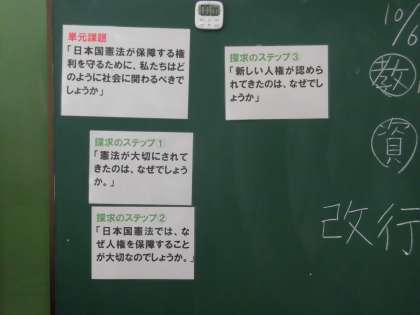 単元課題
「日本国憲法が保障する権
利を守るために、私たちはど
のように社会に関わるべきで
しょうか」
探求のステップ①
「憲法が大切にされて
きたのは、なぜでしょう
か。」
探求のステップ②
「日本国憲法では、な
ぜ人権を保障すること
が大切なのでしょうか。」
探求のステップ③
「新しい人権が認めら
れてきたのは、なぜでし
ょうか」
10/6
教
資
改行